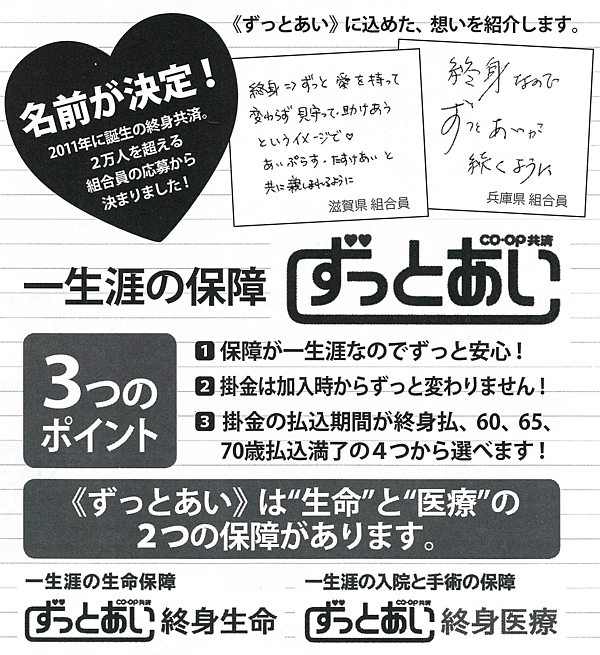 《ずっとあい》に込めた、想いを紹介します。
名前が決定！
2011年に誕生の終身共済。
2万人を超える
組合員の応募から
決まりました！
終身⇒ずっと 愛を持って
変わらず 見守って・助けあう
というイメージで♡
あいぷらす・たすけあい と
共に 親しまれるように
滋賀県 組合員
終身なので
ずっと あいが
続くように
兵庫県 組合員
一生涯の保障
CO・OP共済
ずっとあい
3つの
ポイント
1 保障が一生涯なのでずっと安心！
2 掛金は加入時からずっと変わりません！
3 掛金の払込期間が終身払、60、65、
70歳払込満了の４つから選べます！
《ずっとあい》は“生命”と“医療”の
２つの保障があります。
一生涯の生命保障
CO・OP共済
ずっとあい 終身生命
一生涯の入院と手術の保障
CO・OP共済
ずっとあい 終身医療